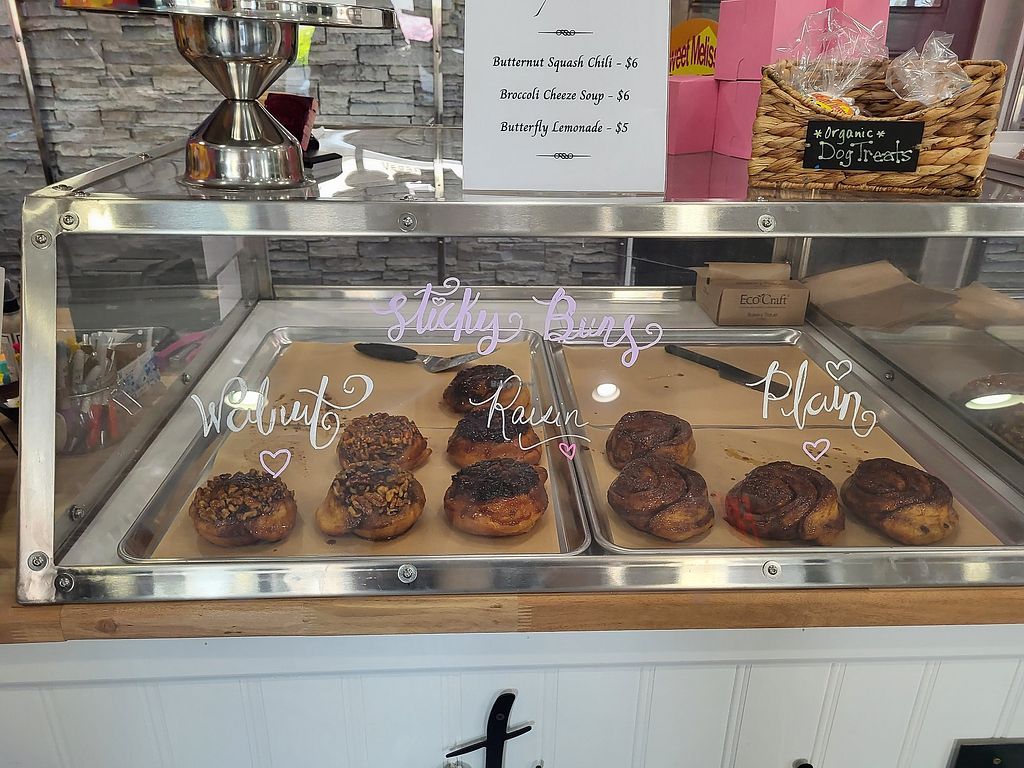 Butternut Squash Chili - $6
Broccoli Cheeze Soup - $6
Butterfly Lemonade - $5
*Organic*
Dog Treats
Sticky Buns
Walnut
Raisin
Plain
Eco Craft